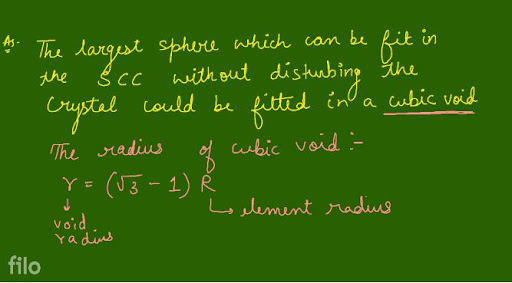 As. The largest sphere which can be fit in
the SCC without disturbing the
Crystal could be fitted in a cubic void
The radius of cubic void :-
r = (√3 - 1) R
↓ ↳ element radius
void
radius
filo